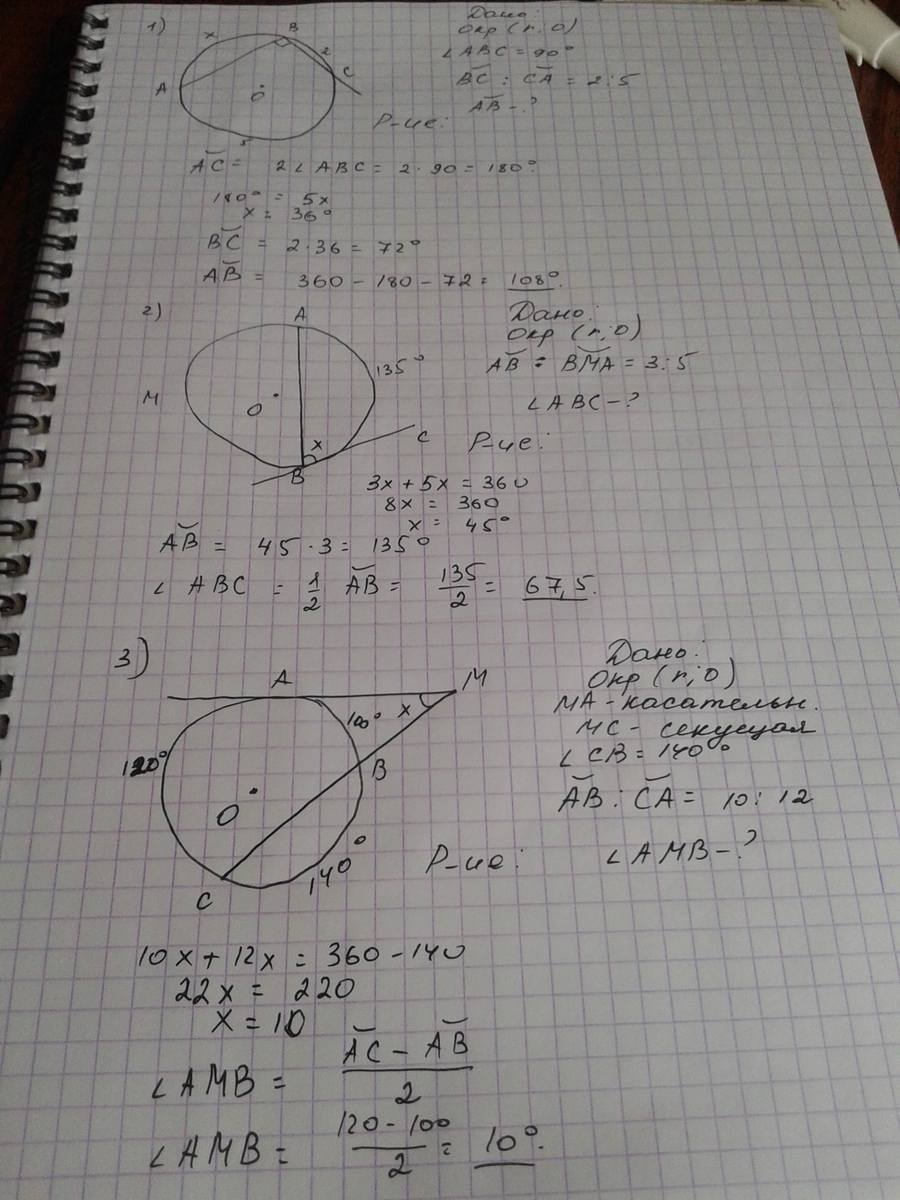 1)
x B 2 C A O 5
Дано:
Окр (r; O)
∠ABC = 90°
B͡C : C͡A = 2:5
A͡B - ?
Р-ие:
A͡C = 2∠ABC = 2·90 = 180°
180° = 5x
x = 36°
B͡C = 2·36 = 72°
A͡B = 360 - 180 - 72 = 108°.
2)
A 135° M O x C B
Дано:
Окр (r; O)
A͡B : B͡MA = 3:5
∠ABC - ?
Р-ие:
3x + 5x = 360
8x = 360
x = 45°
A͡B = 45·3 = 135°
∠ABC = 1/2 A͡B = 135/2 = 67,5.
3)
A M 100° x 120° B O 140° C
Дано:
Окр (r; O)
MA - касательн.
MC - секущая
∠CB = 140°
A͡B : C͡A = 10:12
∠AMB - ?
Р-ие:
10x + 12x = 360 - 140
22x = 220
x = 10
∠AMB = (A͡C - A͡B)/2
∠AMB = (120 - 100)/2 = 10°.